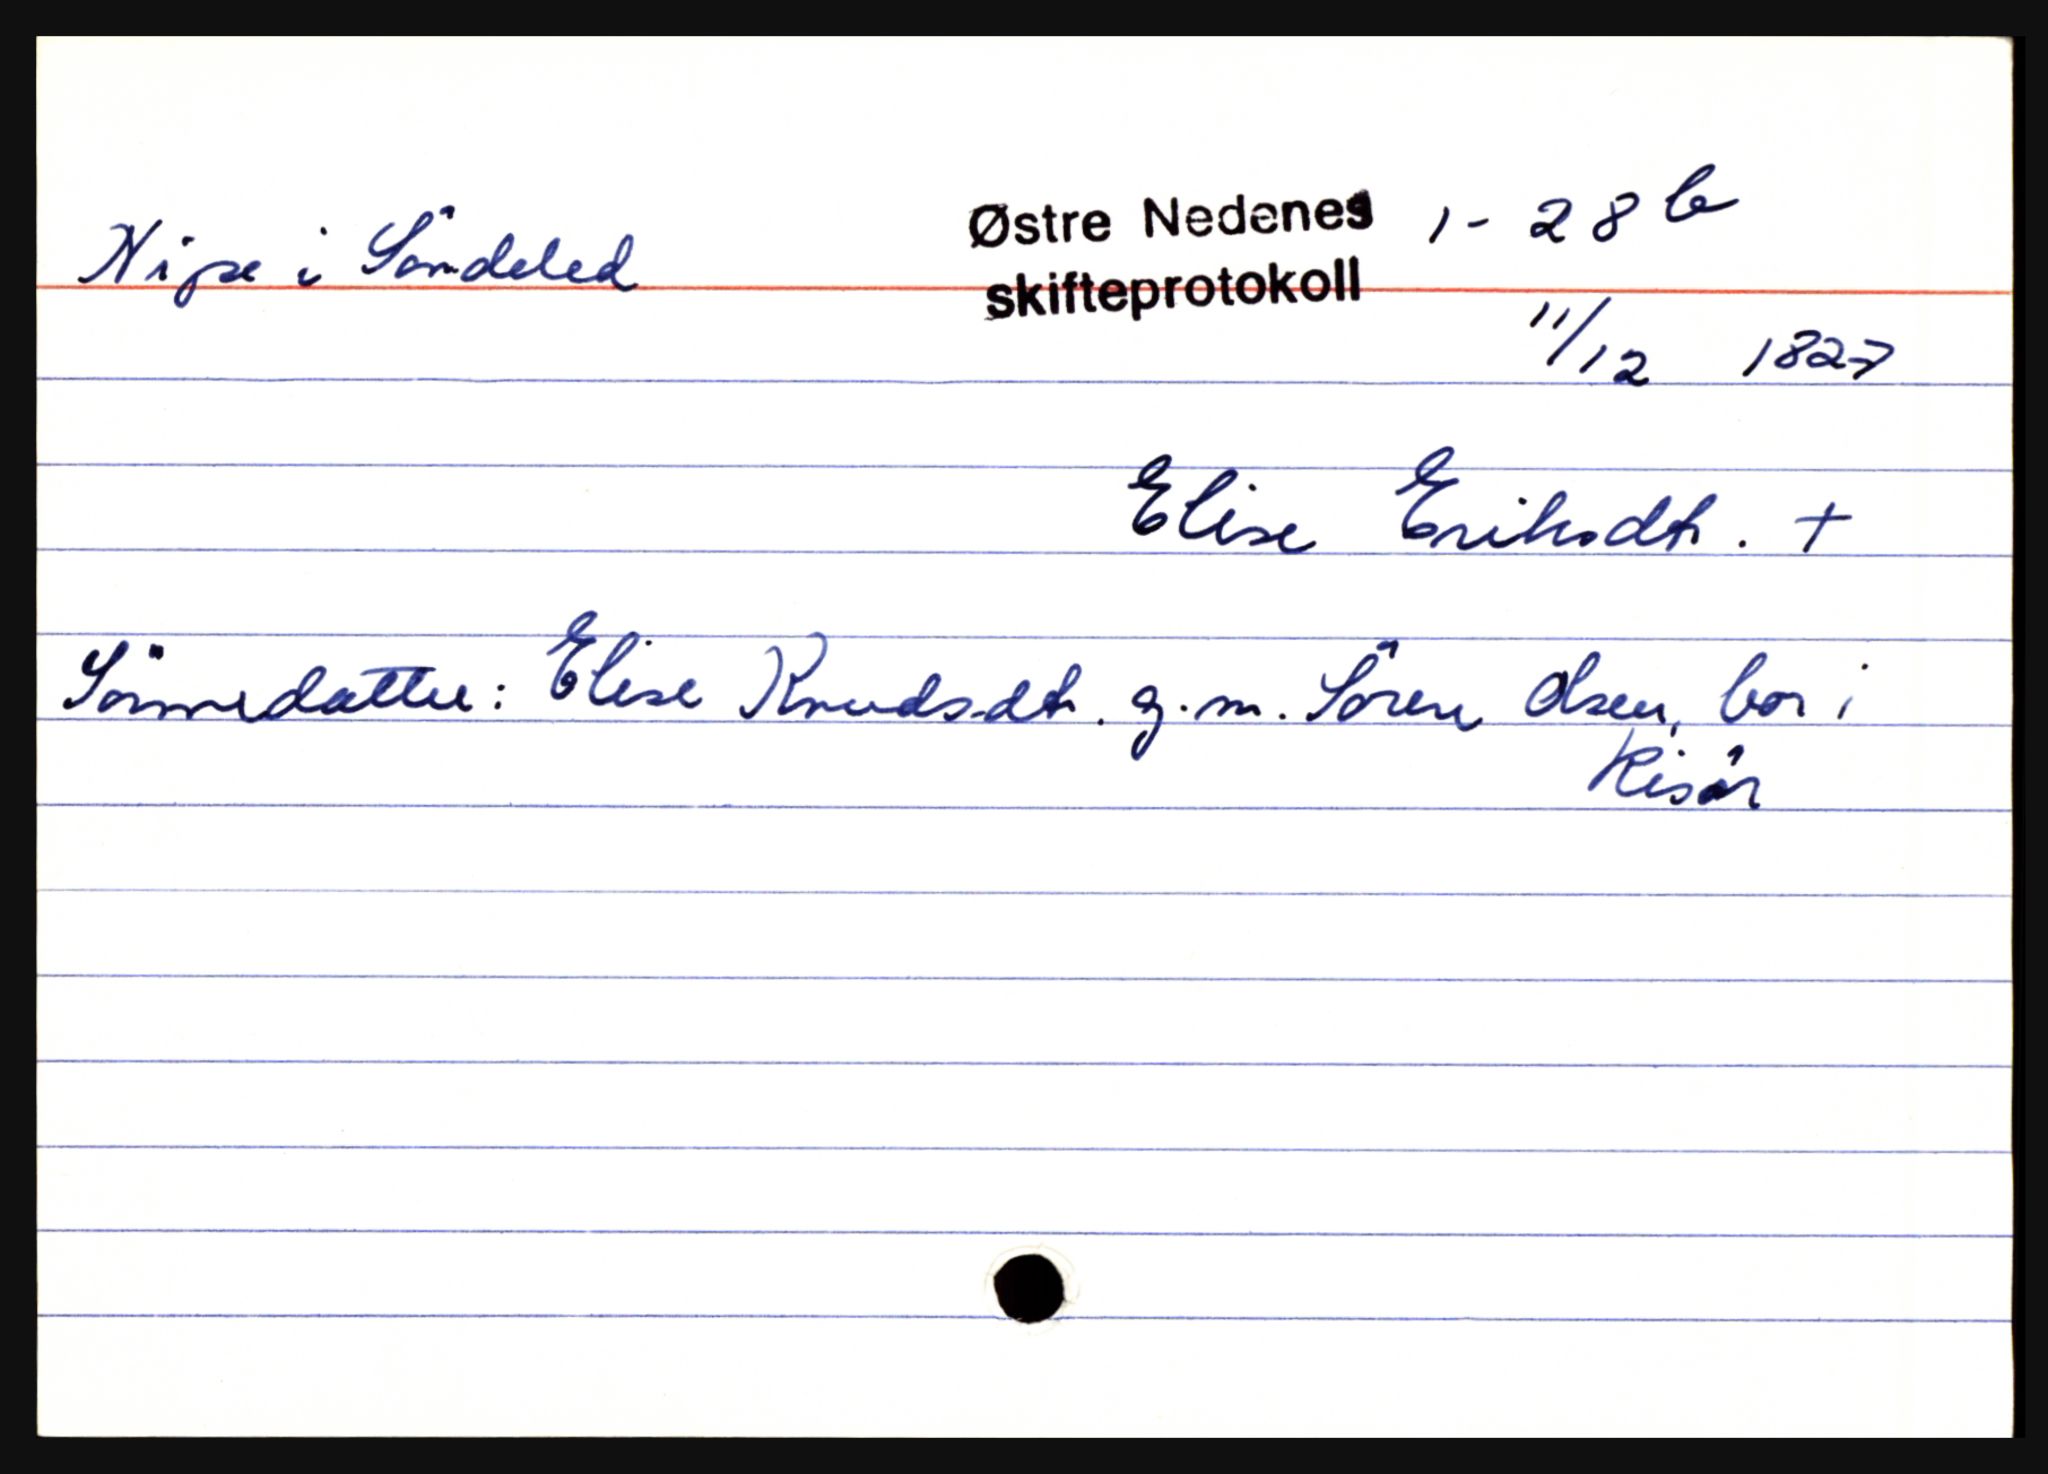 Nipe i Söndeled
Østre Nedenes 1-28b
skifteprotokoll
11/12 1827
Elise Eriksdtr. +
Sönnedatter: Elise Knudsdtr. g.m. Sören Olsen, bor i
Risör